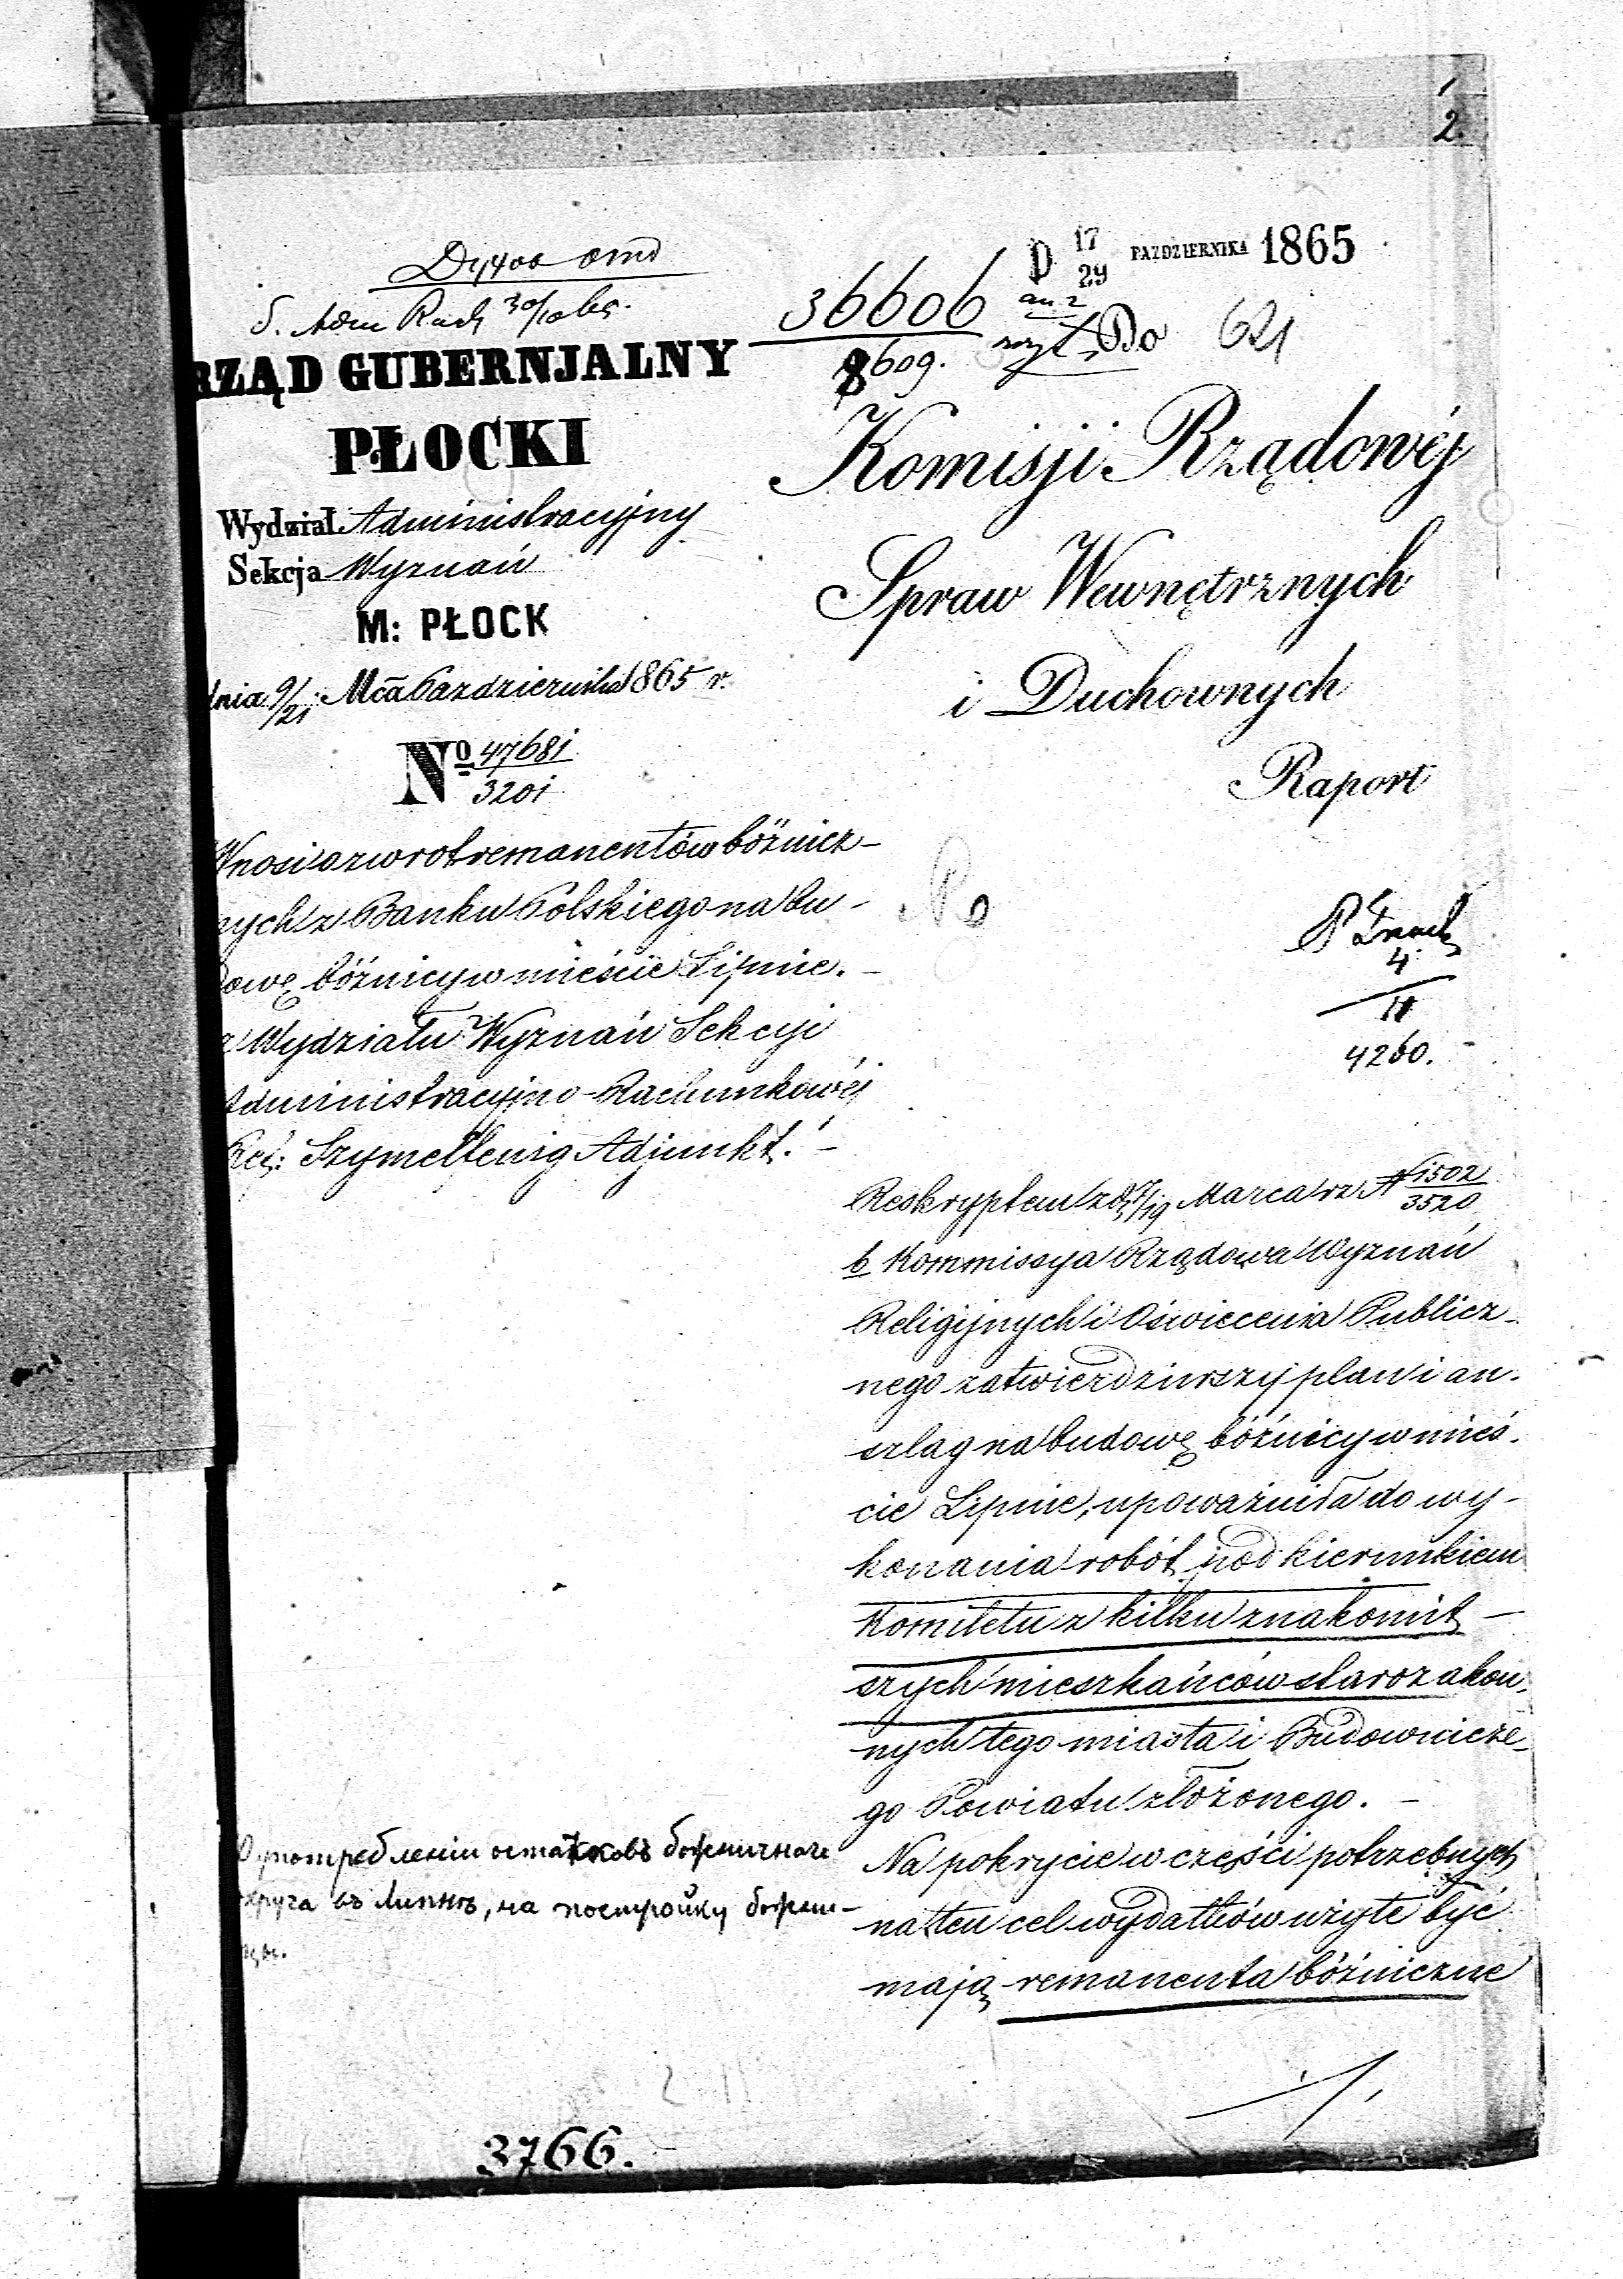 1
2.
P 17/29 PAZDZIERNIKA 1865
36606
8609.
Do 621
RZĄD GUBERNJALNY
PŁOCKI
Wydział Administracyjny
Sekcja Wyznań
M: PŁOCK
dnia 9/21 Mca Października 1865 r.
No 47681
3201
Komisji Rządowéj
Spraw Wewnętrznych
i Duchownych
Raport
Wnosi o zwrot remanentów bóżnicz-
nych z Banku Polskiego na bu-
dowę bóżnicy w mieście Lipnie. -
z Wydziału Wyznań Sekcyi
Administracyjno-Rachunkowéj
Ref: Szymelfenig Adjunkt. -
4
II
4260.
Reskryptem z d. 7/19 Marca rz N 1502/3520
b Kommissya Rządowa Wyznań
Religijnych i Oświecenia Publicz-
nego zatwierdziwszy plan i an-
szlag na budowę bóżnicy w mieś-
cie Lipnie, upoważniła do wy-
konania robót pod kierunkiem
Komitetu z kilku znakomit-
szych mieszkańców starozakon-
nych tego miasta i Budownicze-
go Powiatu złożonego. -
Na pokrycie w części potrzebnych
na ten cel wydatków użyte być
mają remanenta bóżniczne
О употребленіи остатковъ божничнаго
округа въ Липнѣ, на постройку божни-
цы.
3766.